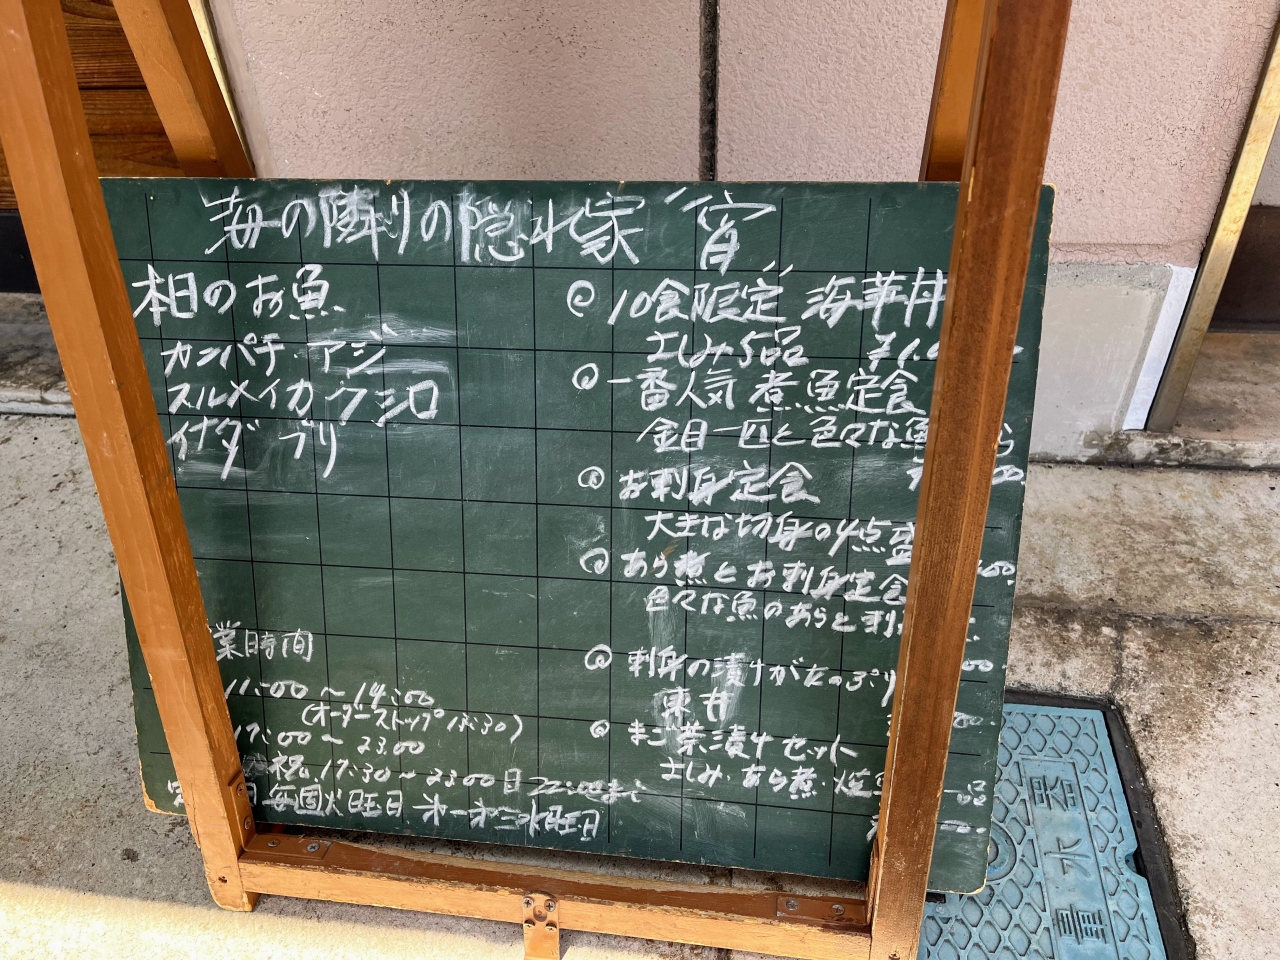 海の隣りの隠れ家 "宵"
本日のお魚
カンパチ・アジ
スルメイカ・クシロ
イナダ ブリ
業時間
11:00 〜 14:00
(オーダーストップ 13:30)
17:00 〜 23:00
祝 17:30 〜 23:00 日 22:00まで
毎週火曜日 第一第三水曜日
◎ 10食限定 海華丼
さしみ5品
◎ 一番人気 煮魚定食
金目一匹と色々な魚
◎ お刺身定食
大きな切身の4点盛
◎ あら煮とお刺身定食
色々な魚のあらと刺
◎ 刺身の漬けがたっぷり
東丼
◎ まご茶漬けセット
さしみ・あら煮・
量水器